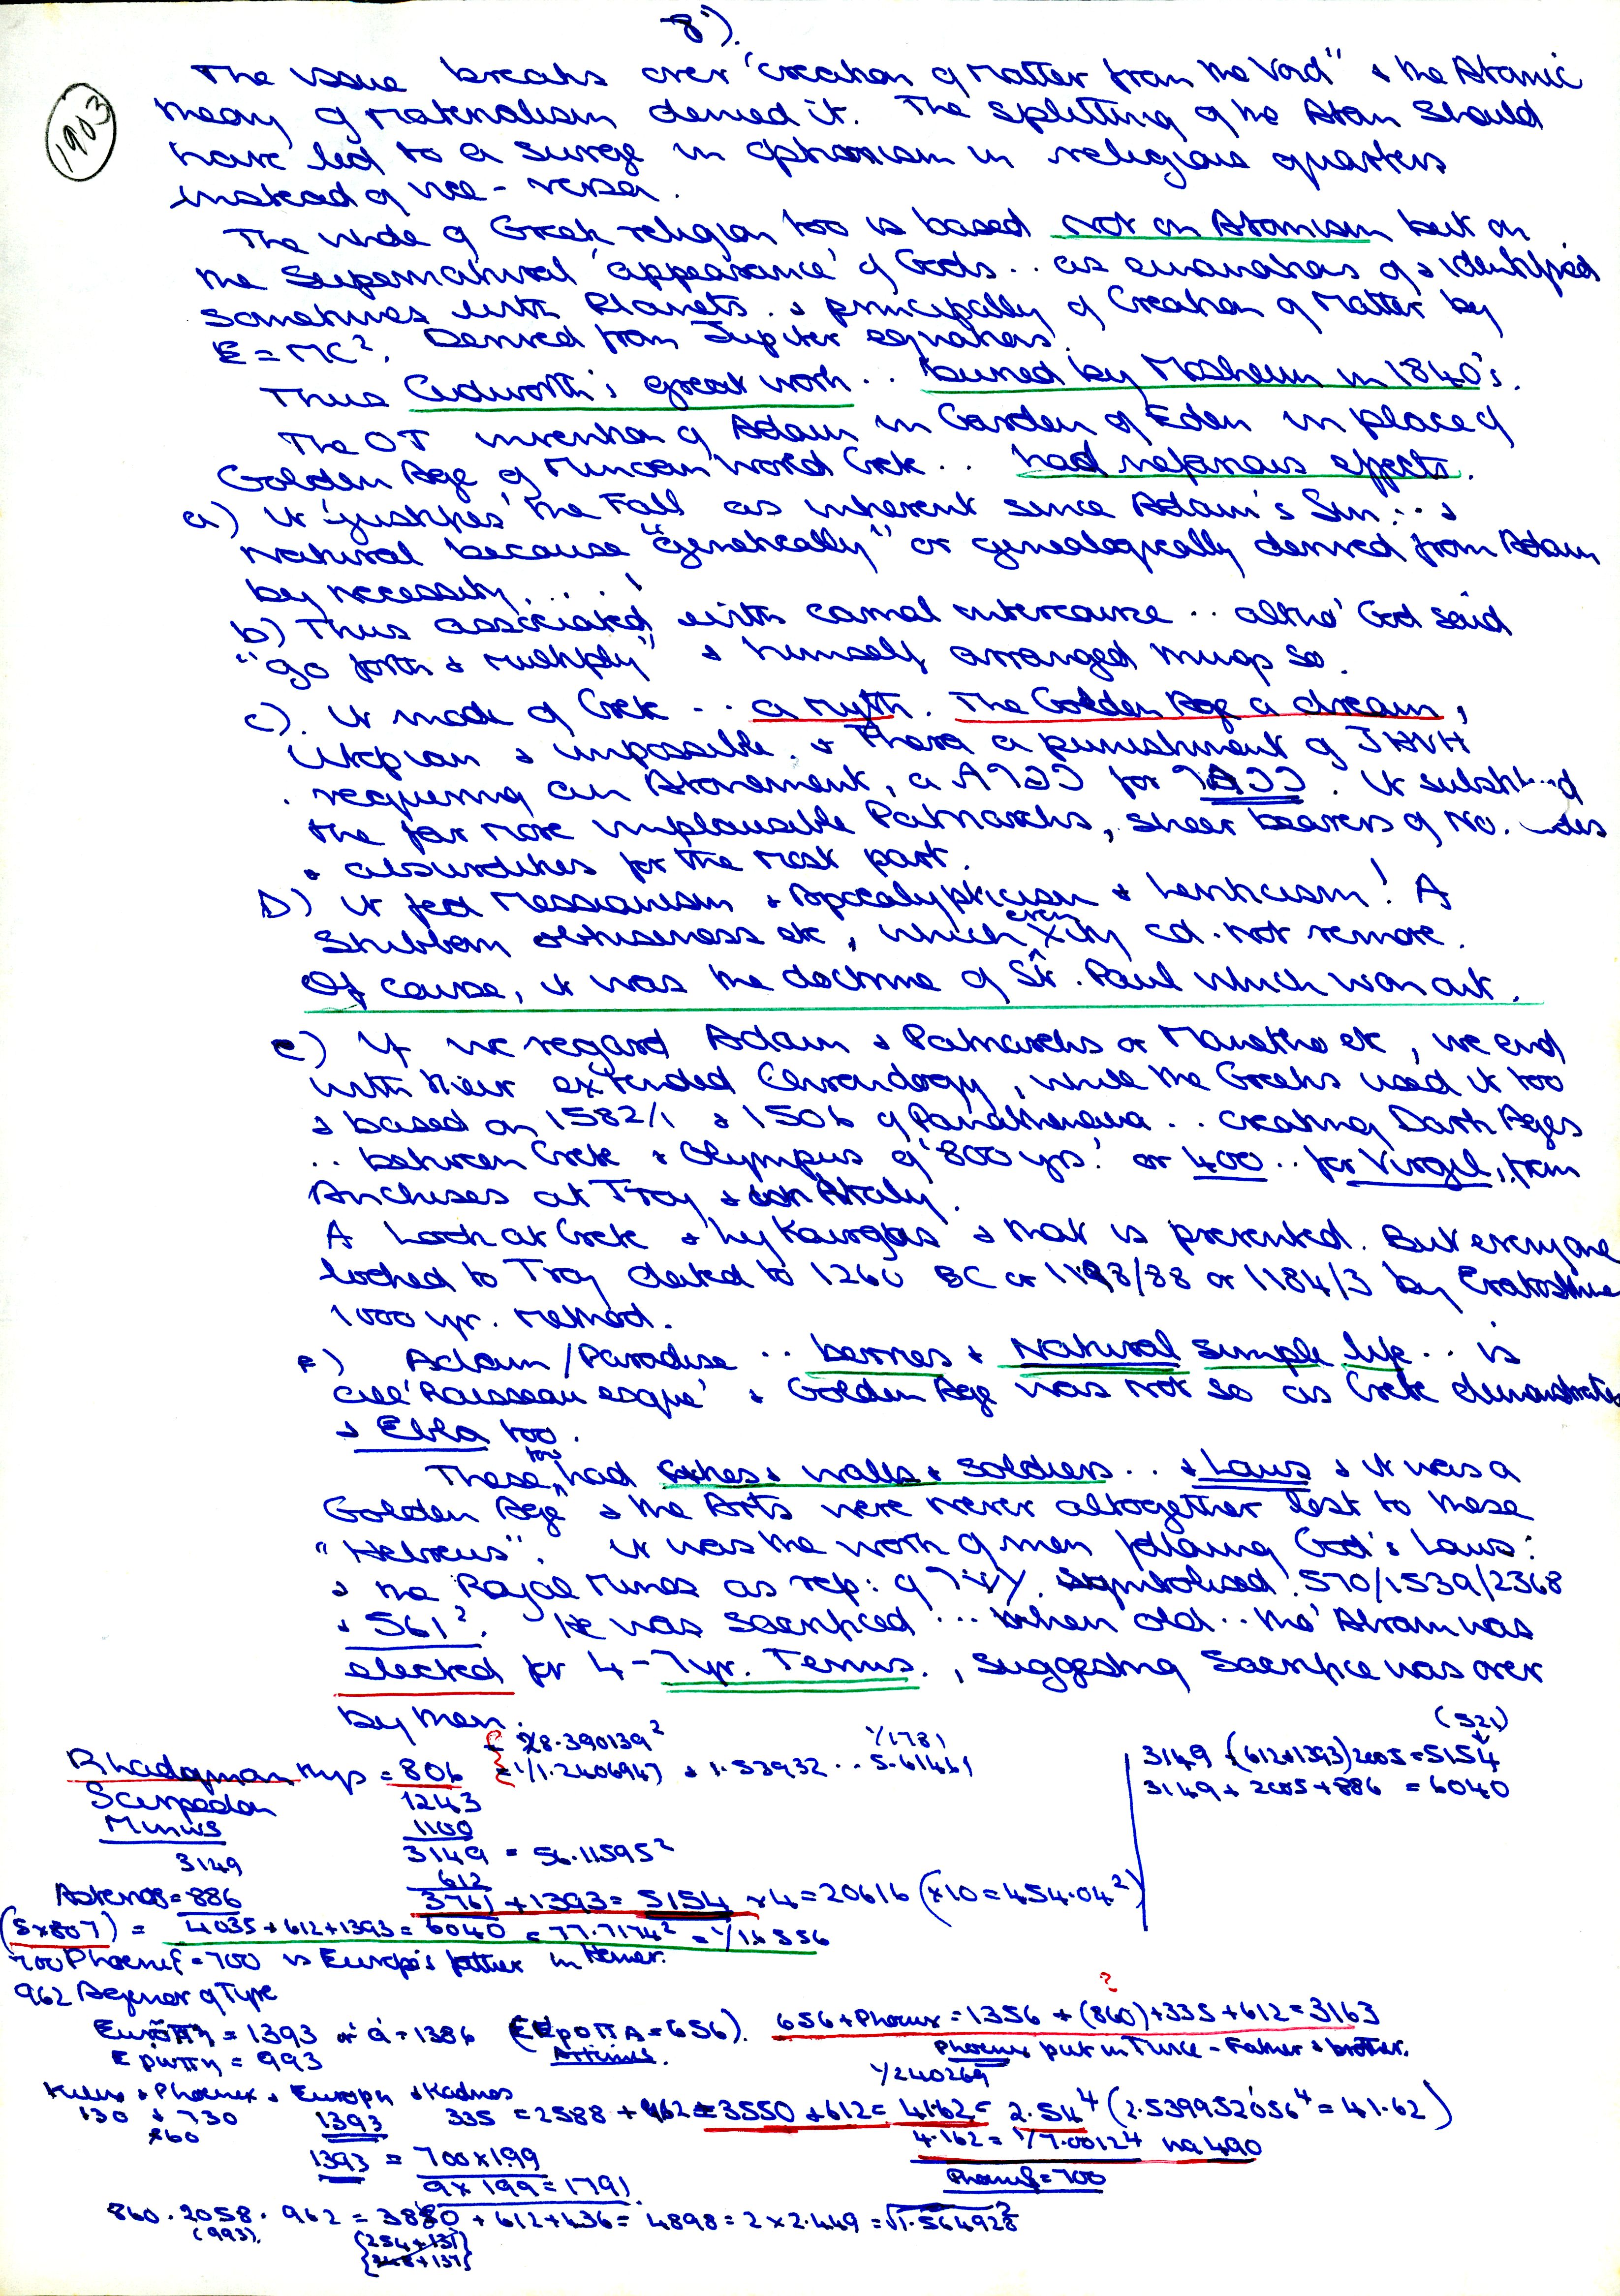 8').
1903
The issue breaks over "Creation of Matter from the Void" & the Atomic
theory of Materialism denied it. The splitting of the Atom should
have led to a surge in optimism in religious quarters
instead of vice-versa.
The whole of Greek religion too is based not on Atomism but on
the Supernatural 'appearance' of Gods.. as emanations of & identified
sometimes with Planets. & principally of Creation of Matter by
E = MC². Derived from Jupiter equations.
Thus Cudworth's great work.. buried by Mosheim in 1840's.
The OT invention of Adam in Garden of Eden in place of
Golden Age of Minoan World Crete.. had nefarious effects.
a) it 'justifies' the Fall as inherent since Adam's Sin... &
Natural because "genetically" or genealogically derived from Adam
by necessity.....!
b) Thus associated with carnal intercourse.. altho' God said
"go forth & multiply" & himself arranged things so.
c). it made of Crete.. a Myth. The Golden Age a dream,
Utopian & impossible. & Thera a punishment of JHVH
requiring an Atonement, a for . It
the far more implausible Patriarchs, sheer bearers of No.
& absurdities for the most part.
D) it fed Messianism & Apocalypticism & ! A
Stubborn obtuseness etc, which even Xity cd. not remove.
Of course, it was the doctrine of St. Paul which won out.
e) If we regard Adam & Patriarchs or Manetho etc, we end
with their extended Chronology, while the Greeks used it too
& based on 1582/1 & 1506 of Panathenaea.. creating Dark Ages
.. between Crete & Olympus of '800 yrs.' or 400.. for Virgil, from
Anchises at Troy & Italy.
A Look at Crete & Lykourgos & that is prevented. But everyone
looked to Troy dated to 1260 BC or 1198/88 or 1184/3 by
1000 yr. method.
F) Adam/Paradise.. berries & Natural simple life.. is
all 'Rousseau esque' & Golden Age was not so as Crete demonstrates
& Ebla too.
These too had cities & walls & soldiers.. & Laws & it was a
Golden Age & the Arts were never altogether lost to these
"Hebrews". It was the work of men following God's Laws:
& the Royal Minos as rep: of . Symbolised 570/1539/2368
& 561². He was sacrificed... when old.. tho' Abram was
elected for 4-7yr. Terms., suggesting Sacrifice was over
by then.
Rhadaman thys = 806 = 28.390139²
= 1/1.2406947 & 1.53932.. 5.61461
1/1781
Sarpedon 1243
Minws 1100
3149 3149 = 56.11595²
612
Asterios = 886 3761 + 1393 = 5154 x 4 = 20616 (x10 = 454.04²)
(5x807) = 4035 + 612 + 1393 = 6040 = 77.7174² = 1/16556
(521)
3149 + (612+1393) 2005 = 5154
3149 + 2005 + 886 = 6040
700 Phoenix = 700 is Europe's father in Homer.
962 Agenor of Tyre
Eurōπη = 1393 or a = 1386 (EυροπA = 656). 656 + Phoenix = 1356 + (860) + 335 + 612 = 3163
?
Eρωπη = 993 Artemis. Phoenix put in Twice - Father & brother.
1/240269
Kilix & Phoenix & Europη & Kadmos
130 & 730 1393 335 = 2588 + 962 = 3550 + 612 = 4162 = 2.54⁴ (2.539952056⁴ = 41.62)
860
4.162 = 1/7.0012⁴ via 490
1393 = 700 x 1.99 Phoenix = 700
9 x 199 = 1791
860 . 2058 . 962 = 3880 + 612 + 436 = 4898 = 2 x 2.449 = √1.564928²
(993). {254+137}